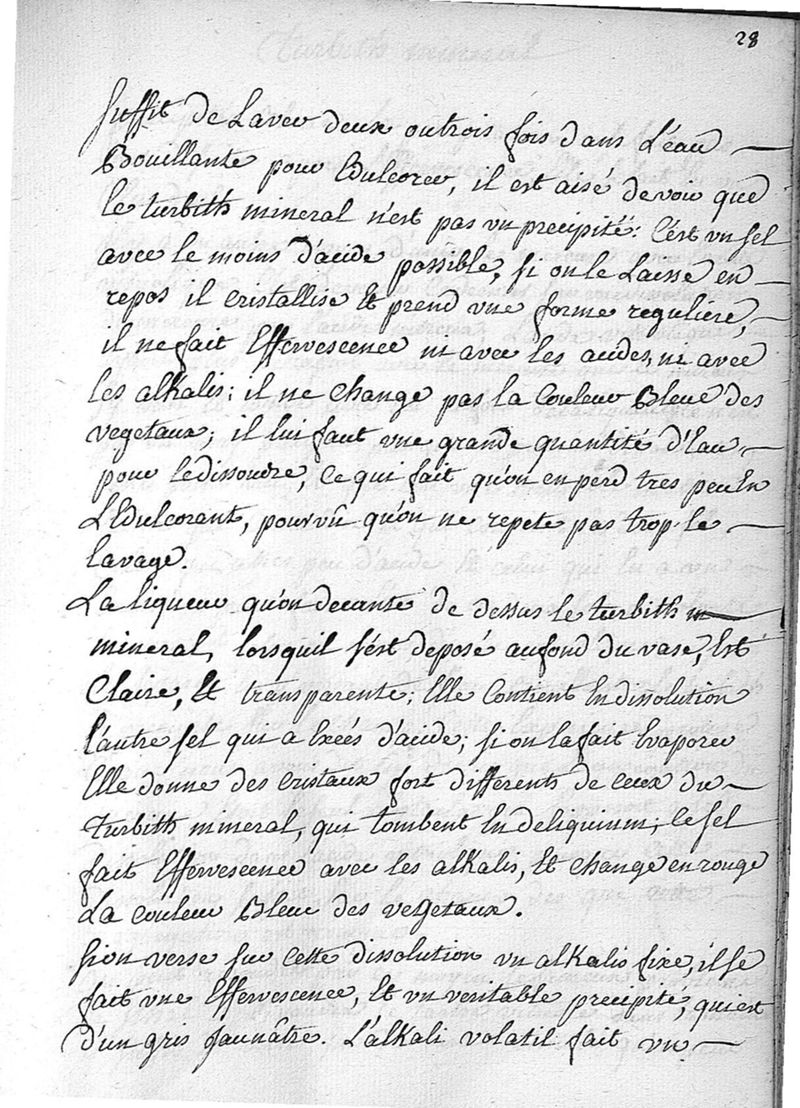 28
suffit de Laver deux outrois fois dans L'éau
Bouillante pour Edulcorer, il est aisé devoir que
le turbith mineral n'est pas un precipité: C'est un sel
avec le moins d'acide possible, si onle Laisse en
repos il cristallise Et prend une forme reguliere,
il nefait Effervescence ni avec les acides, ni avec
les alkalis; il ne change pas la Couleur Bleue des
vegetaux; il lui faut une grande quantité d'Eau
pour ledissoudre, Ce qui fait qu'on enperd tres peu En
L'Edulcorant, pourvû qu'on ne repete pas trop le
lavage.
La liqueur qu'on decante de dessus le turbith m
mineral, lorsquil s'ést deposé aufond du vase, Est
Claire, Et transparente; Elle Contient En dissolution
l'autre sel qui a Excés d'acide; si on la fait Evaporer
Elle donne des Cristaux fort differents de ceux du
turbith mineral, qui tombent En deliquium; Ce sel
fait Effervescence avec les alKalis, Et change enrouge
La couleur Bleue des vegetaux.
Sion verse sur Cette dissolution un alKalis fixe, il se
fait une Effervescence, Et un veritable precipité, qui est
d'un gris jaunâtre. L'alKali volatil fait un